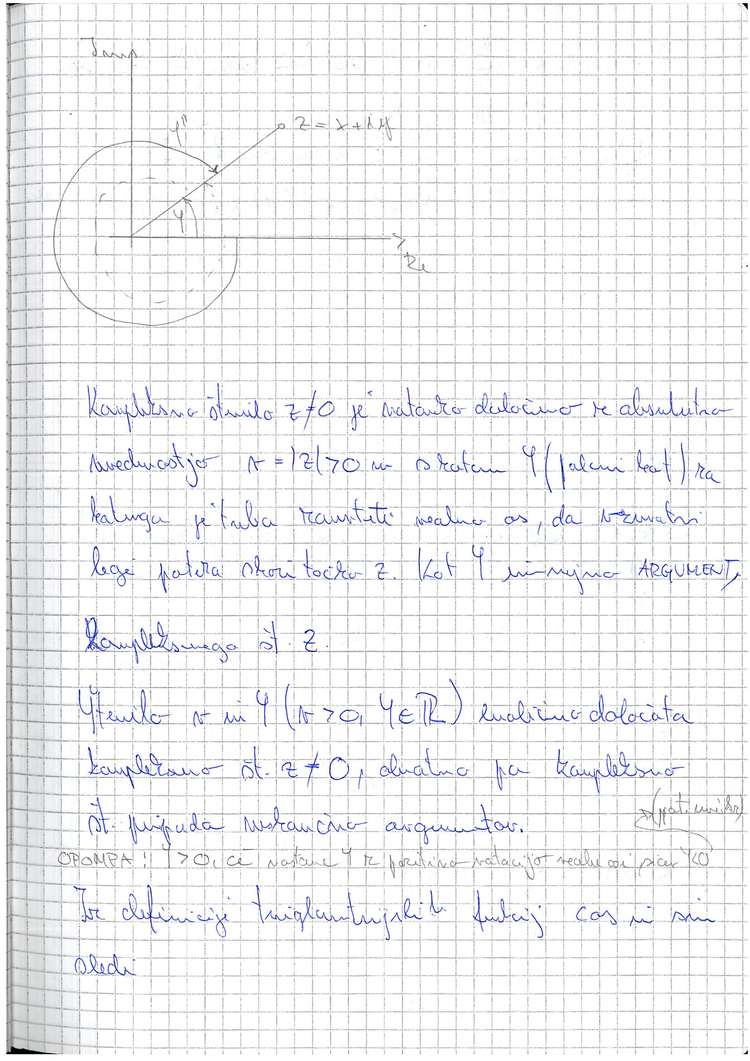 Im
φ"
z = x + iy
φ
Re
Kompleksno število z ≠ 0 je natanko določeno z absolutno
vrednostjo r = |z| > 0 in s kotom φ (polarni kot) za
katerega je treba zavrteti realno os, da v
lege poteka skozi točko z. Kot φ imenujmo ARGUMENT,
kompleksnega št. z.
Število r in φ (r > 0, φ ∈ ℝ) enolično določata
kompleksno št. z ≠ 0, obratno pa kompleksno
št. pripada neskončno argumentov.
OPOMBA!! φ > 0, če nastane φ z pozitivno rotacijo realne osi, sicer φ < 0
Iz definicije trigonometrijskih funkcij cos in sin
sledi